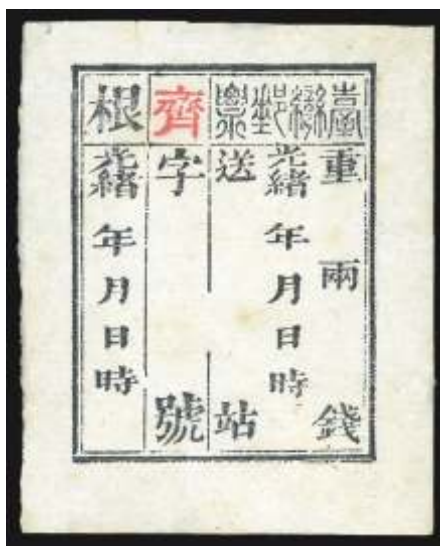 臺灣郵票
重兩錢
光緒年月日時
送站
齊
字號
根
光緒年月日時